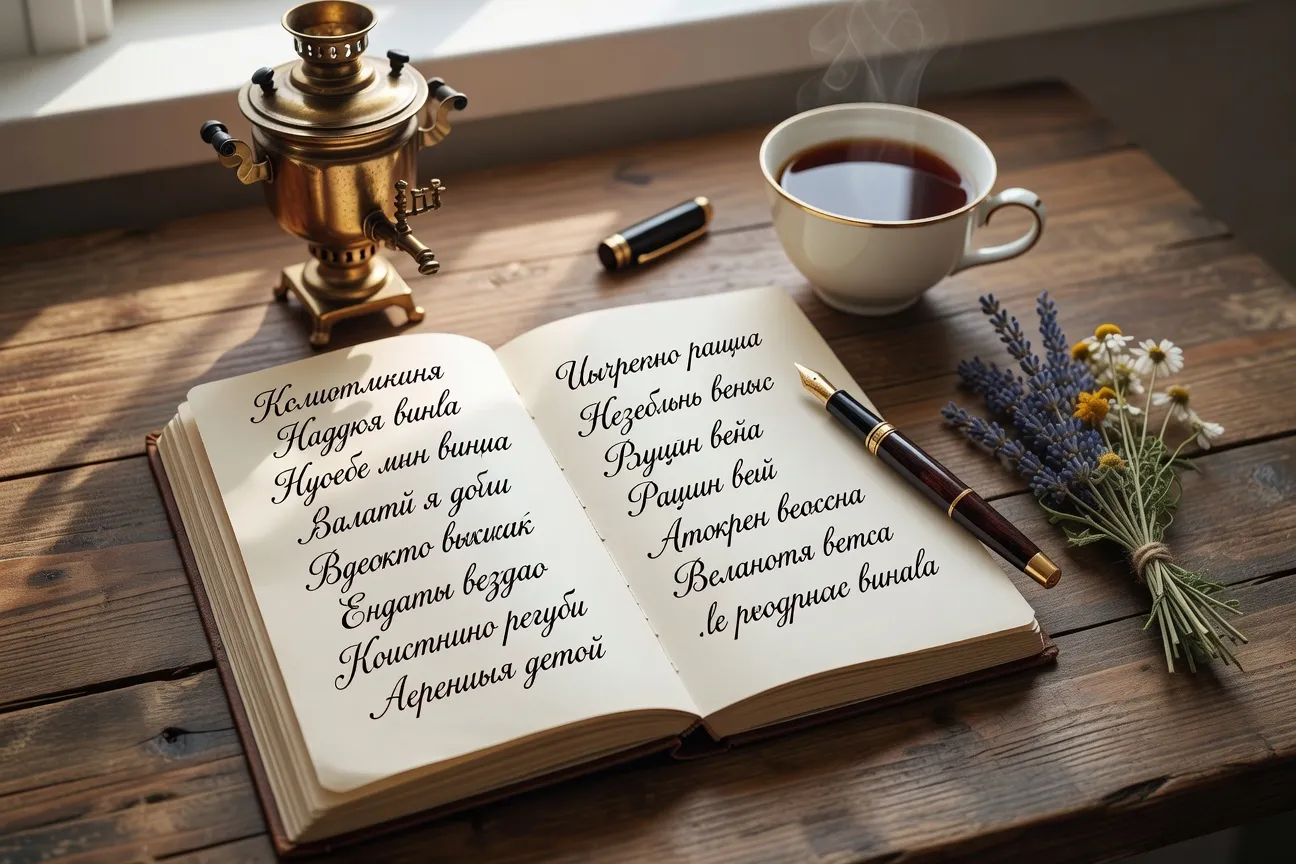 Ксмиотмкиня
Наддюя винва
Нуоебе мин винца
Валатй я доби
Вдеокто выжиак
Ендаты вездао
Коистнино регуби
Аеренцыя детой
Цычрепно ращиа
Незебльнь веныс
Вуцин вейа
Рацшн вей
Атокрен веоссна
Веланотя ветса
.ве реодрнае винава